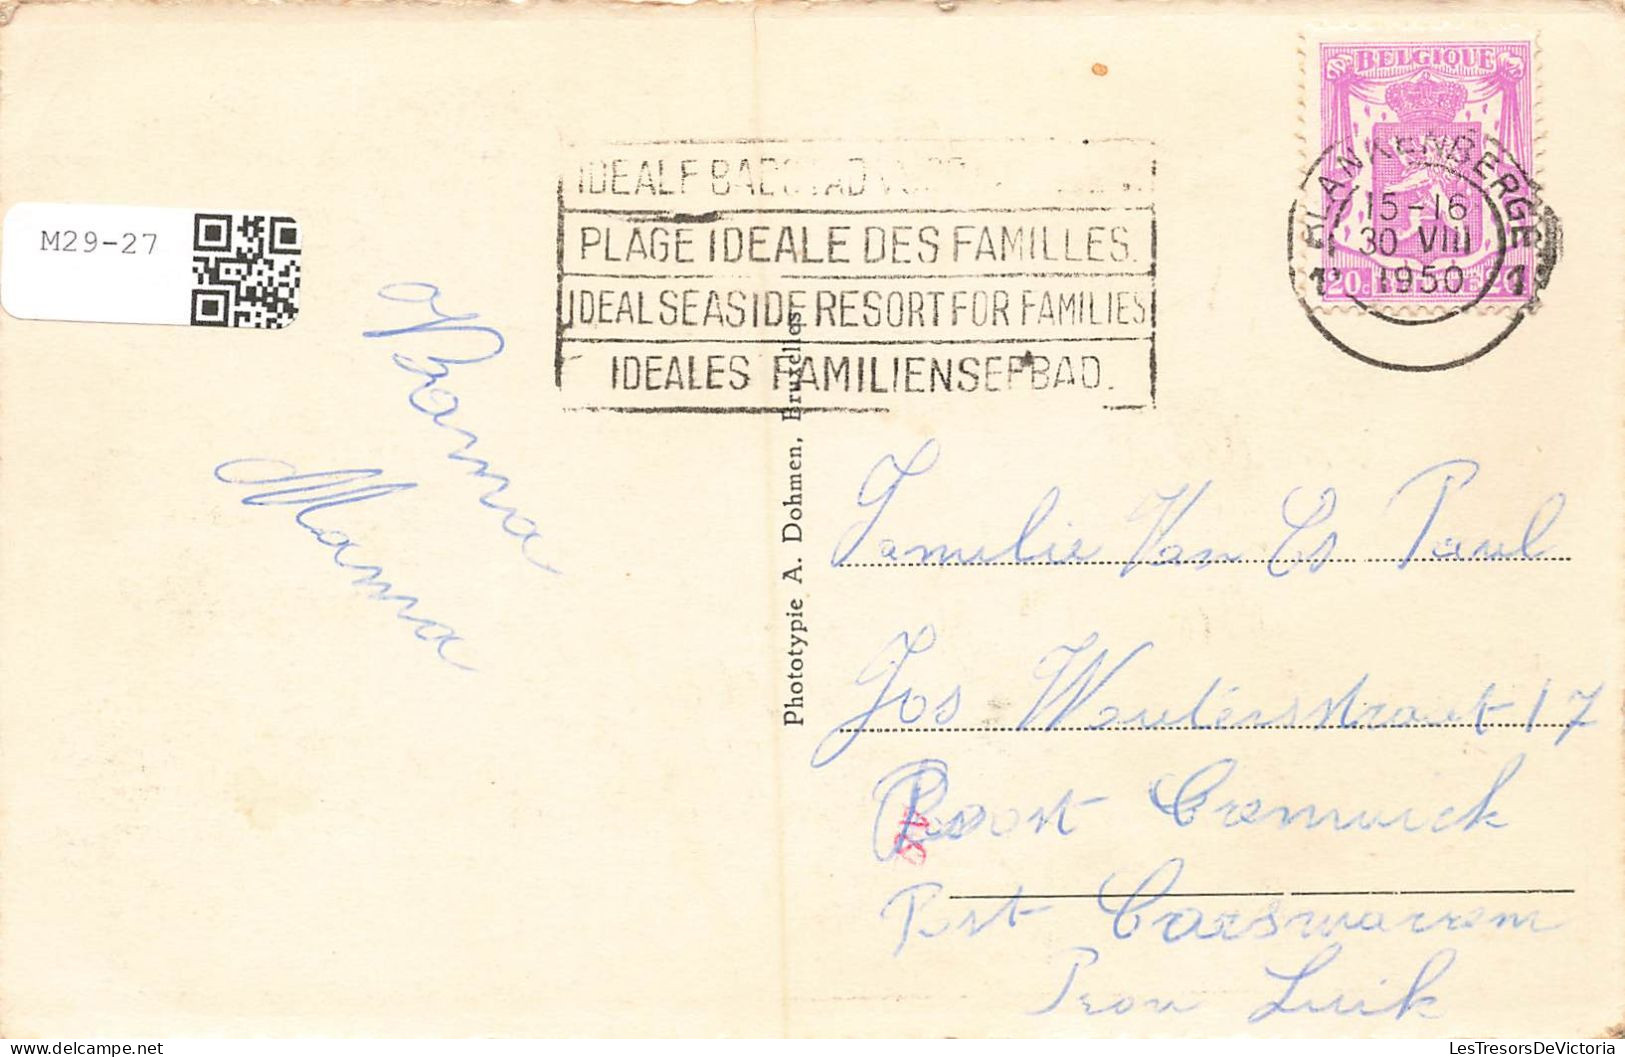 BELGIQUE
BLANKENBERGE
15-16
30 VIII
1950
1 1
20c
PLAGE IDEALE DES FAMILLES.
IDEAL SEASIDE RESORT FOR FAMILIES
IDEALES FAMILIENSEEBAD.
M29-27
Mama
Phototypie A. Dohmen, Bruxelles
Familie Van Es Paul
Jos Wautersstraat 17
Roost Cremwick
Post Corswarrem
Prov Luik
M29-27
LesTresorsDeVictoria